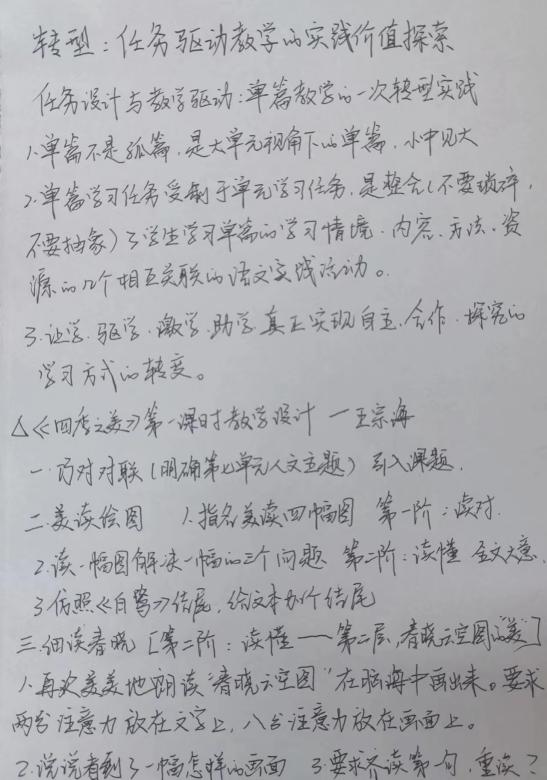 转型：任务驱动教学的实践价值探索
任务设计与教学驱动：单篇教学的一次转型实践
1.单篇不是孤篇，是大单元视角下的单篇，小中见大
2.单篇学习任务受制于单元学习任务，是整合（不要琐碎，
不要抽象）了学生学习单篇的学习情境、内容、方法、资
源的几个相互关联的语文实践活动。
3.让学、驱学、激学、助学，真正实现自主、合作、探究的
学习方式的转变。
△《四季之美》第一课时教学设计 —王宗海
一.巧对对联（明确第七单元人文主题）引入课题.
二.美读绘图 1.指名美读四幅图 第一阶：读对.
2.读一幅图解决一幅的三个问题 第二阶：读懂 全文大意.
3.仿照《白鹭》结尾，给文本加个结尾
三.细读春晓［第二阶：读懂——第二层，春晓云空图的"美"］
1.再次美美地朗读"春晓云空图"在脑海中画出来。要求
两台注意力放在文字上，八台注意力放在画面上。
2.说说看到了一幅怎样的画面 3.要求又读第一句，重读？